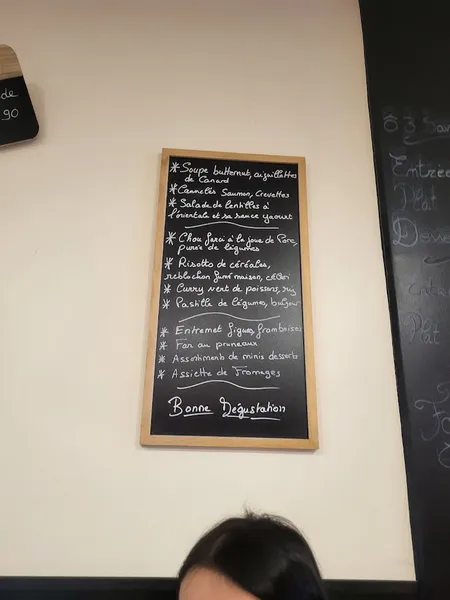 de
90
* Soupe butternut, aiguillettes
de Canard
* Cannelés Saumon, Crevettes
* Salade de lentilles à
l'orientale et sa sauce yaourt
* Chou farci à la joue de Porc,
purée de légumes
* Risotto de céréales,
reblochon fumé maison, céleri
* Curry vert de poissons, riz
* Pastilla de légumes, bulgour
* Entremet figues, framboises
* Far au pruneaux
* Assortiments de minis desserts
* Assiette de Fromages
Bonne Dégustation
Ô 3 Sav
Entrée
Plat
Desse
Plat